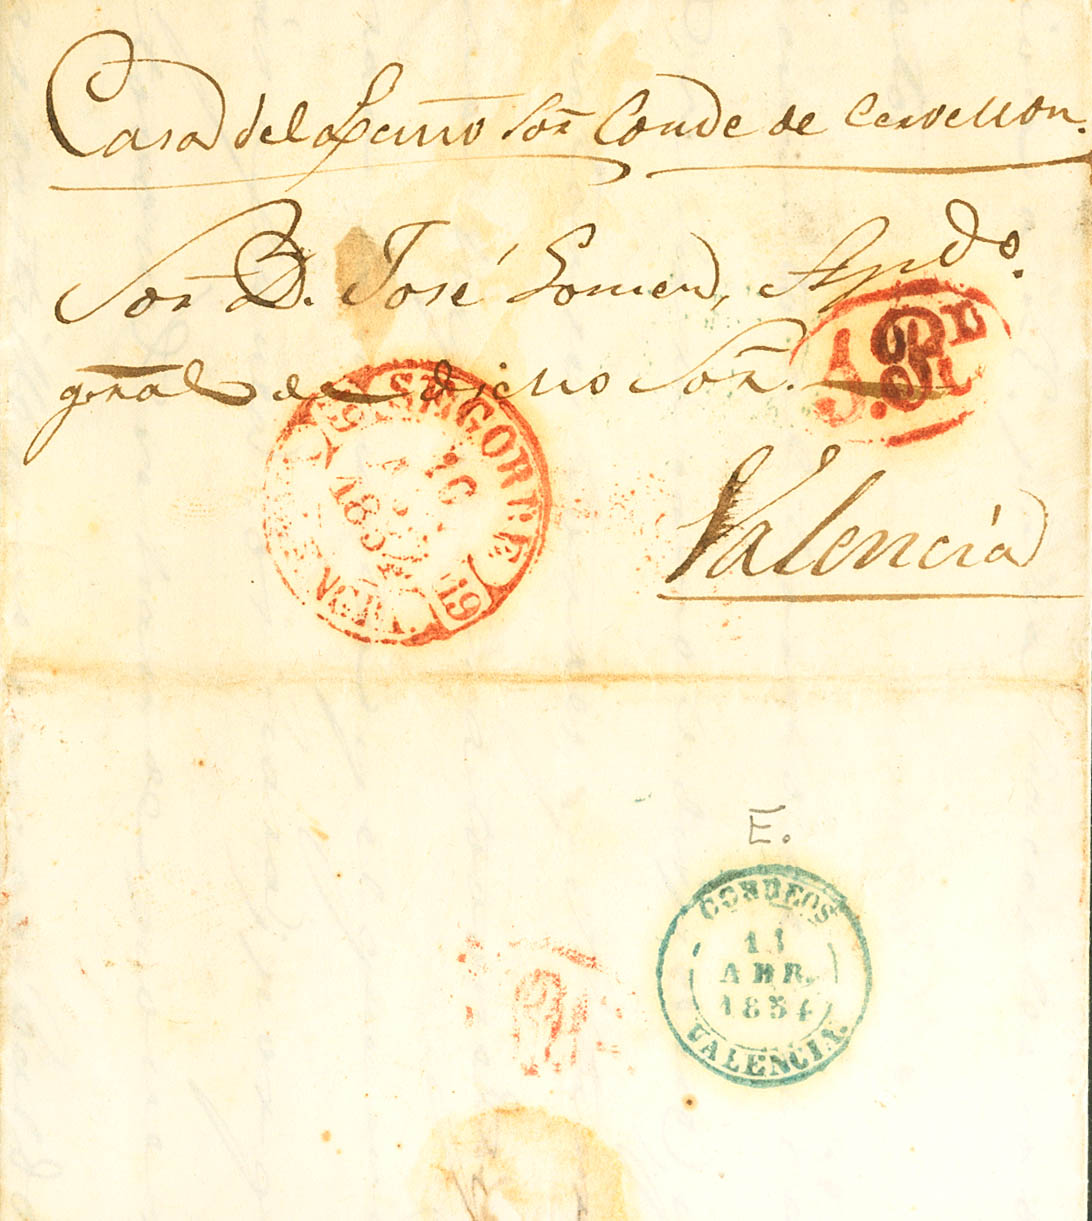 Casa del Exmo Sor Conde de Cervellon.
Sor D. José Gomez, Apdo.
genal de dicho Sor.
SEGORBE
10
185
19
Valencia
E.
CORREOS
11
ABR.
1854
VALENCIA.